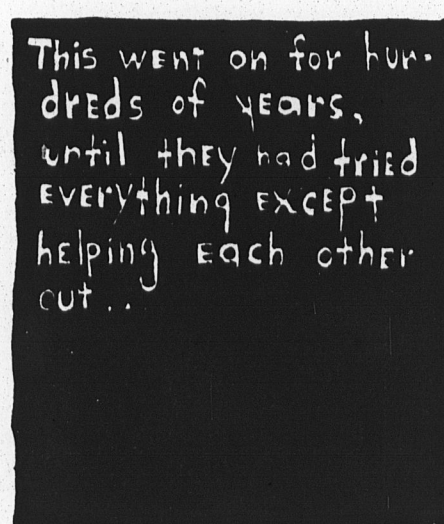 This went on for hun-
dreds of years,
until they had tried
everything except
helping each other
out..